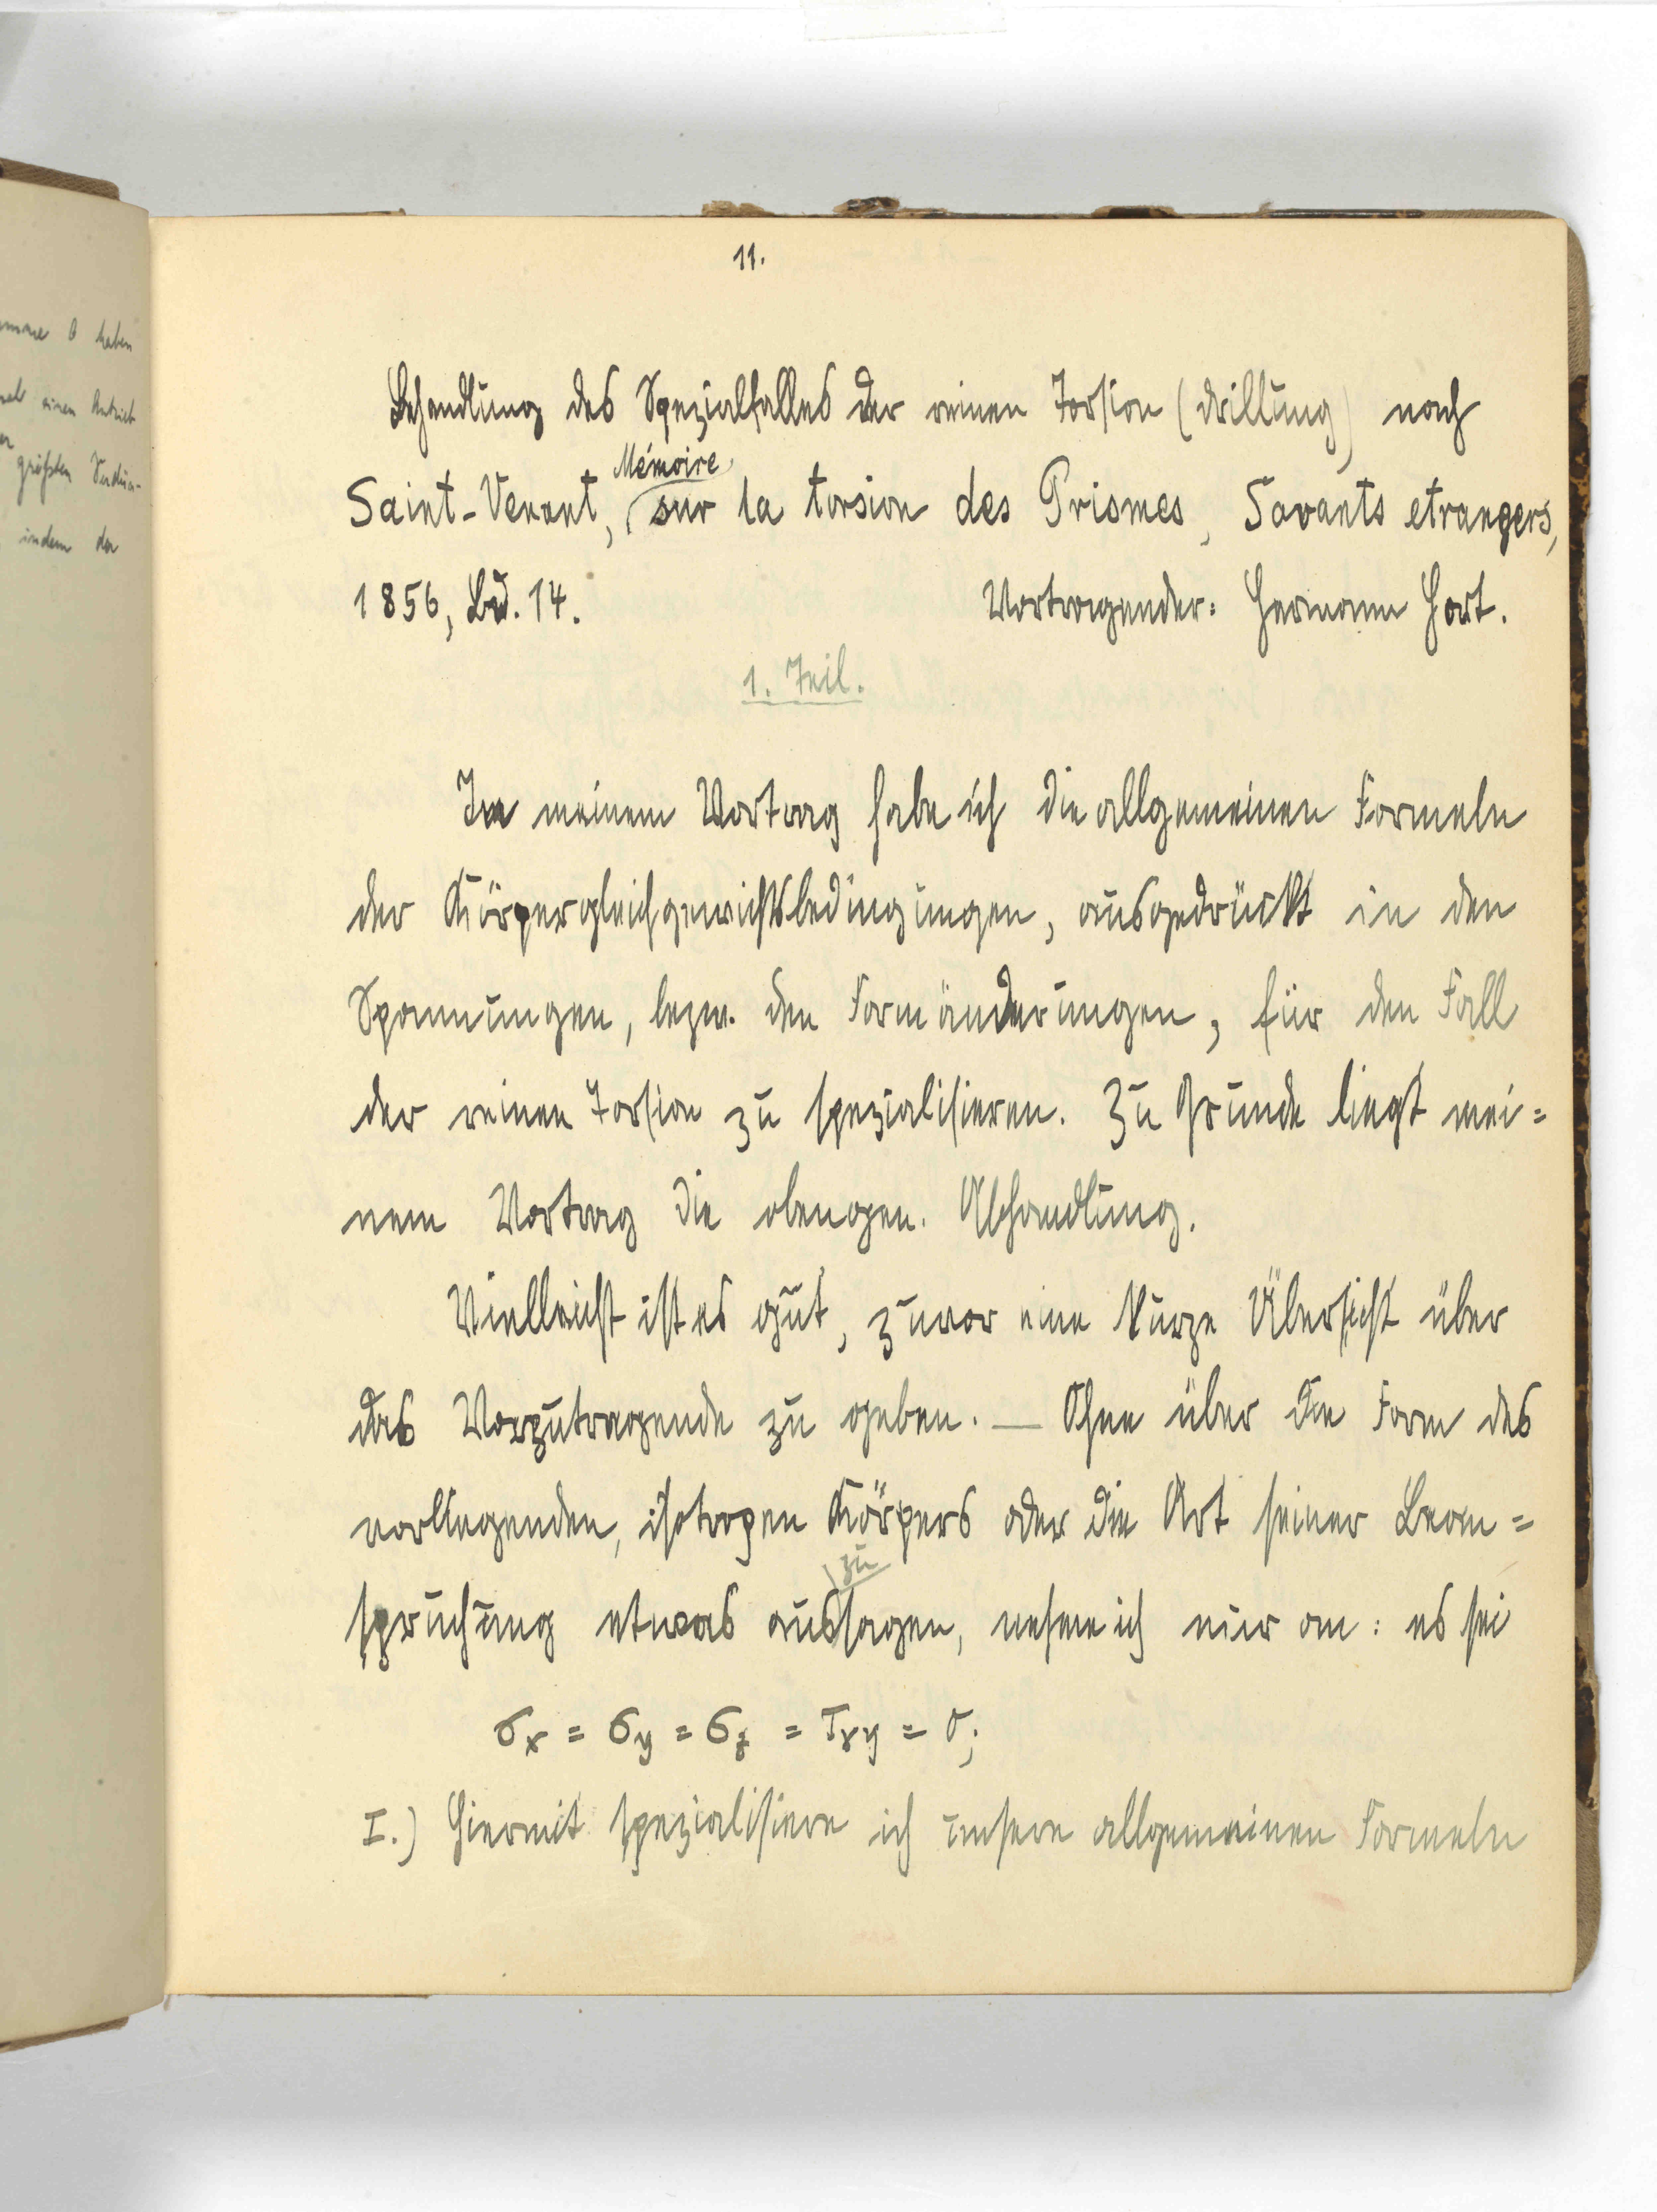 11.
Behandlung des Spezialfalles der reinen Torsion (Drillung) nach
Mémoire
Saint-Venant, sur la torsion des Prismes, Savants etrangers,
1856, Bd. 14. Vortragender: Hermann Hort.
1. Teil.
In meinem Vortrag habe ich die allgemeinen Formeln
der Körpergleichgewichtsbedingungen, ausgedrückt in den
Spannungen, bezw. den Formänderungen, für den Fall
der reinen Torsion zu spezialisieren. Zu Grunde liegt mei=
nem Vortrag die obengen. Abhandlung.
Vielleicht ist es gut, zuvor eine kurze Übersicht über
das Vorzutragende zu geben. — Ohne über die Form des
vorliegenden, isotropen Körpers oder die Art seiner Bean=
zu
spruchung etwas aussagen, nehme ich nur an: es sei
σx = σy = σz = τxy = 0;
I.) Hiermit spezialisiere ich unsere allgemeinen Formeln
haben
einen Antrieb
größten
indem der